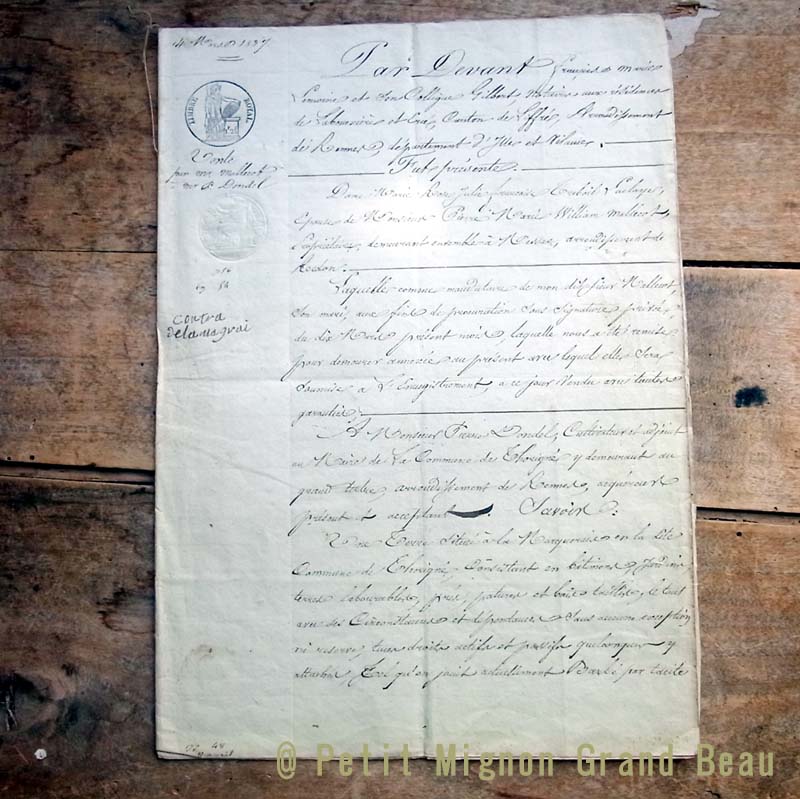 1837
TIMBRE ROYAL
Vente
par mr mellecot
à mr P. Dondel
contra
delamagrai
Par Devant françois marie
Lemoine et Son Collègue Gilbert, Notaires aux résidences
de Labouexière et Canton de Liffré, Arrondissement
de Rennes, département d'Ille et Vilaine,
Fut présente
Dame Marie Rose Julie françoise
Epouse de Monsieur Pierre Marie William mellecot,
propriétaire, demeurant ensemble à Messac, arrondissement de
Redon.
Laquelle comme mandataire de mon dit sieur Mellecot,
Son mari, aux fins de procuration Sous Signature privée
du dix Mars présent mois, laquelle nous a été remise
pour demeurer annexée au présent avec lequel elle Sera
Soumise à L'Enregistrement, a ce jour Vendu avec toutes
garanties,
A Monsieur Pierre Dondel, Cultivateur et adjoint
au Maire de La Commune de Thorigné y demeurant au
grand tertre, arrondissement de Rennes, acquéreur
présent et acceptant. Savoir:
Une Terre Située à la Marquerais en la dite
Commune de Thorigné, Consistant en bâtiments, Jardins,
terres labourables, prés, patures et bois taillis, le tout
avec ses Circonstances et dépendances Sans aucune exception
ni reserve, tous droits actifs et passifs quelconques y
attachés, Tel qu'en jouit actuellement Barbé par tacite
@ Petit Mignon Grand Beau